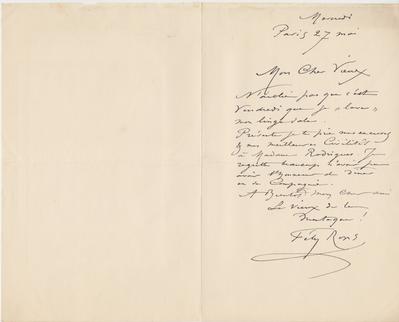 Mercredi
Paris 27 mai
Mon Cher Vieux
N'oublie pas que c'est
Vendredi que je « lave »
mon linge sale.
Présente je te prie mes excuses
& mes meilleures Civilités
à Madame Rodrigues. Je
regrette beaucoup n'avoir pu
avoir l'honneur de diner
en sa Compagnie.
A Bientôt mon Cher ami
Le Vieux de la
Montagne !
Fély Rops